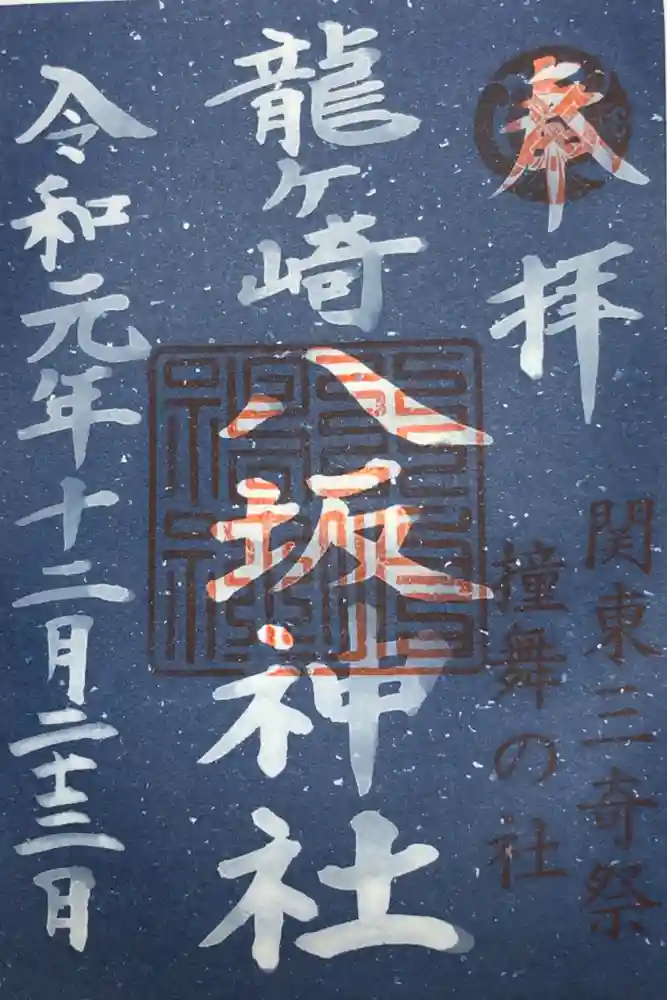 奉拝
関東三奇祭
撞舞の社
龍ヶ崎
八坂神社
令和元年十二月二十三日